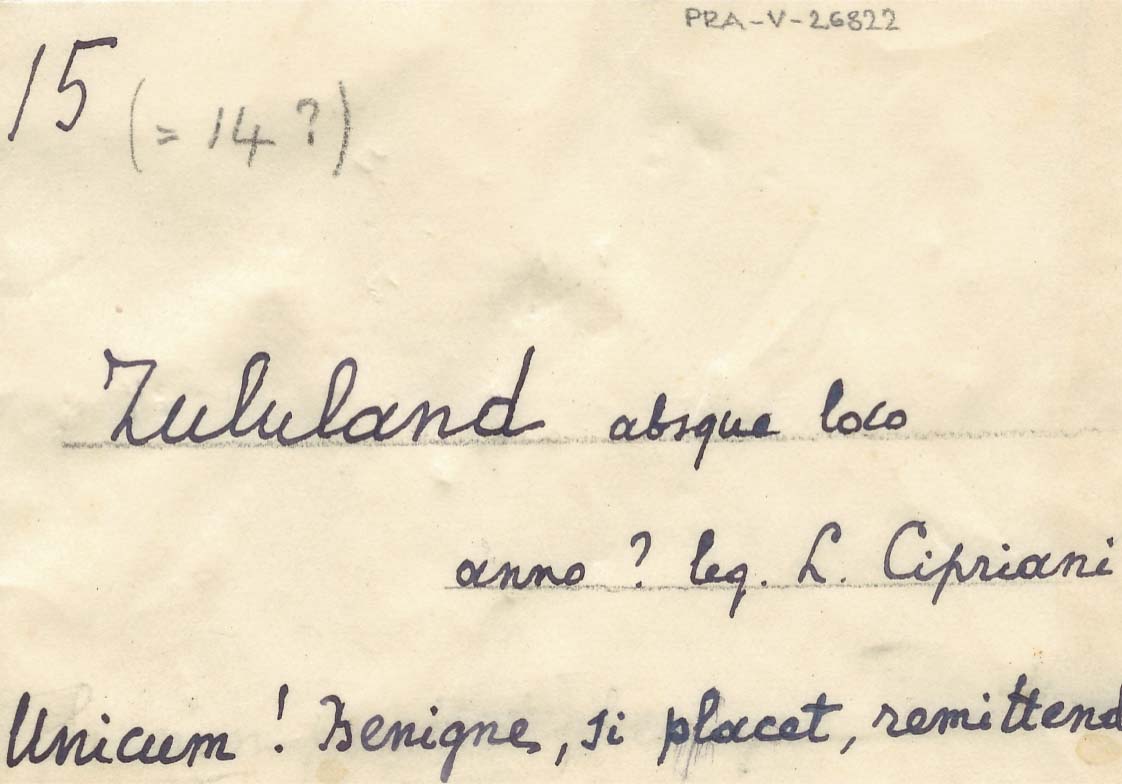 PRA-V-26822
15 (= 14 ?)
Zululand absque loco
anno ? leg. L. Cipriani
Unicum ! Benigne, si placet, remittend